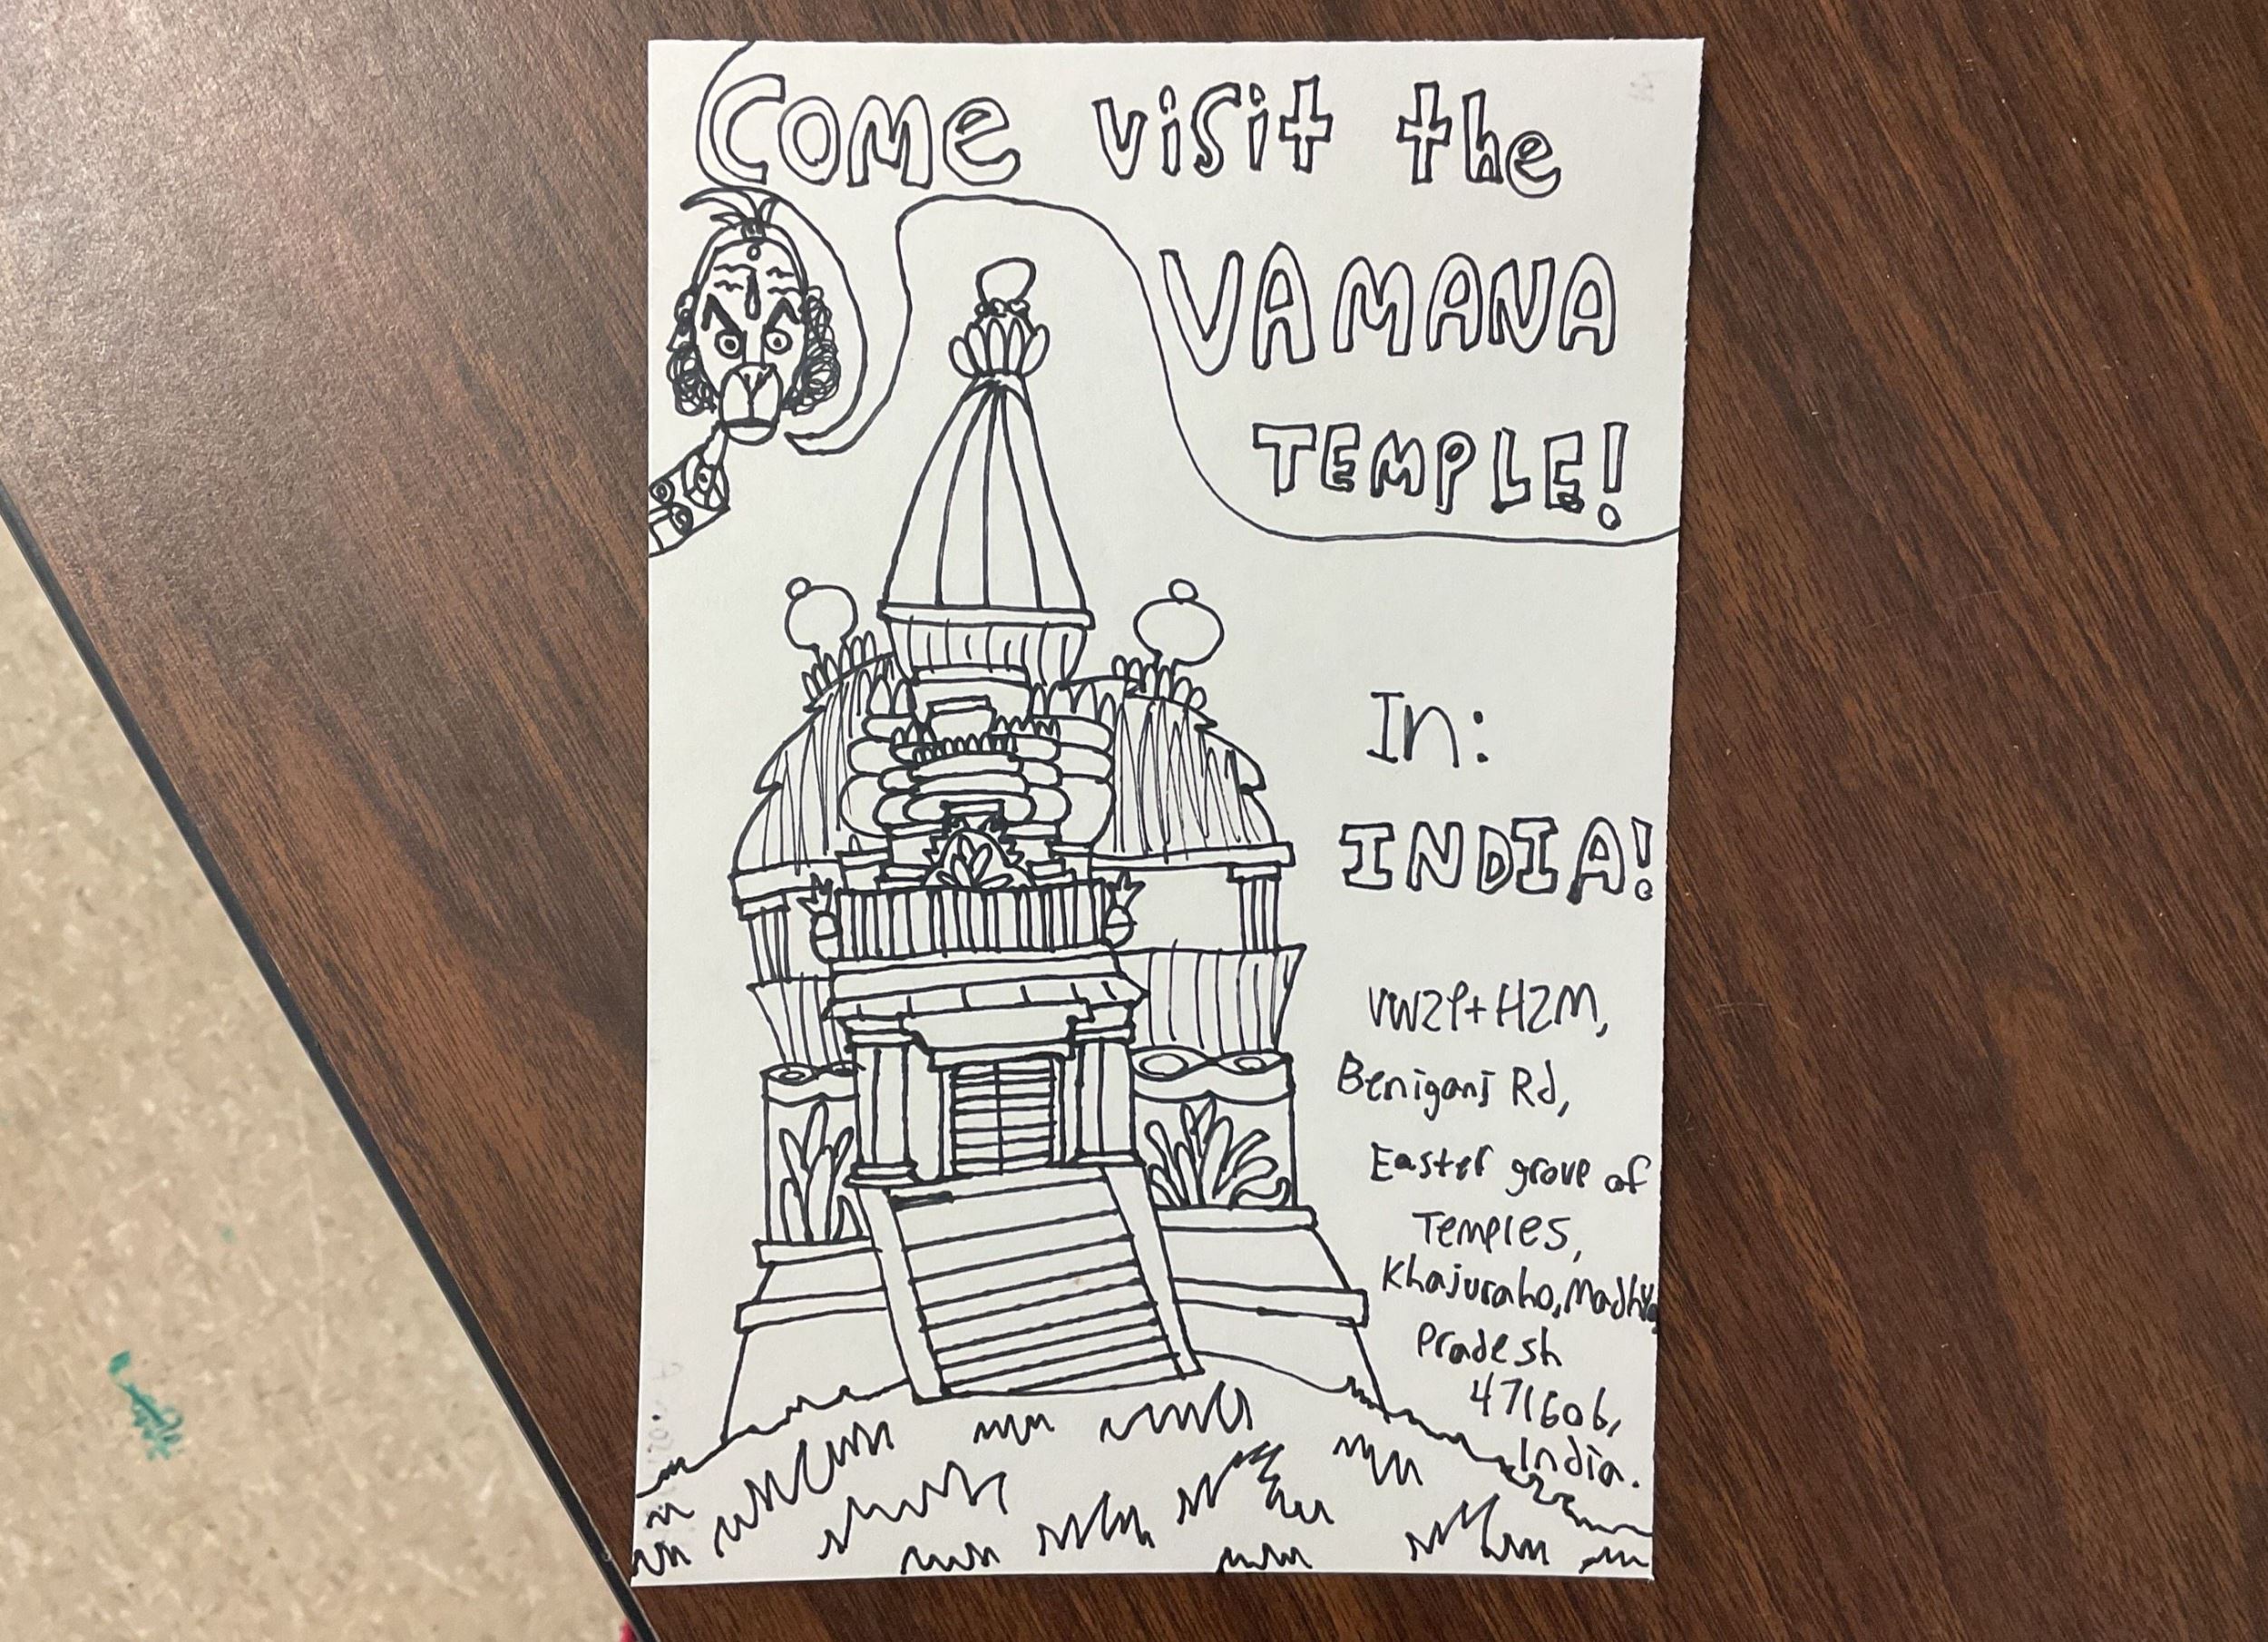 Come visit the
VAMANA
TEMPLE!
In:
INDIA!
VW2P+H2M,
Beniganj Rd,
Easter grove of
Temples,
Khajuraho, Madhya
Pradesh
471606,
India.